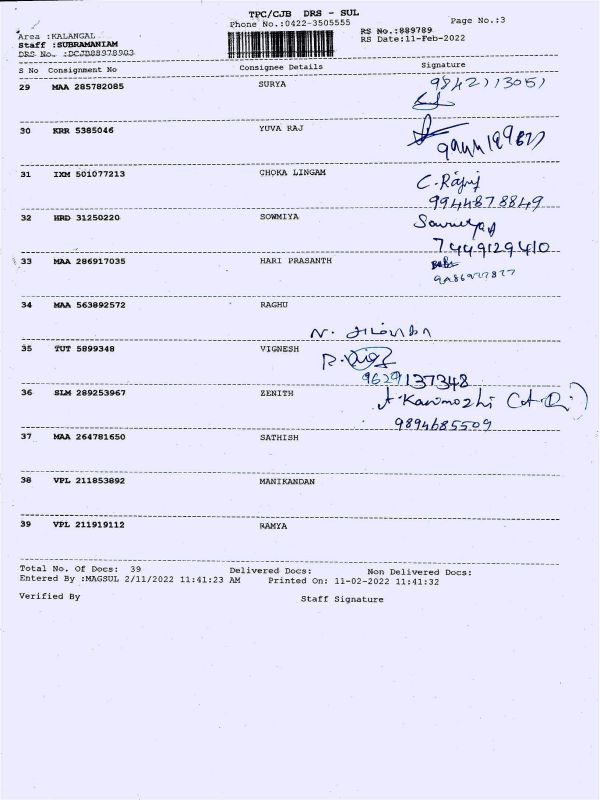 TPC/CJB DRS - SUL
Phone No.:0422-3505555
Page No.:3
Area :KALANGAL
RS No.:889789
Staff :SUBRAMANIAM
RS Date:11-Feb-2022
DRS No. :DCJB88978903
S No Consignment No Consignee Details Signature
29 MAA 285782085 SURYA 9842113051
30 KRR 5385046 YUVA RAJ
31 IXM 501077213 CHOKA LINGAM C. Rajuj
9944878849
32 HRD 31250220 SOWMIYA Sowmiya
7449129410
33 MAA 286917035 HARI PRASANTH
34 MAA 563892572 RAGHU
35 TUT 5899348 VIGNESH
9629137348
36 SLM 289253967 ZENITH A. Kanimozhi
9894685509
37 MAA 264781650 SATHISH
38 VPL 211853892 MANIKANDAN
39 VPL 211919112 RAMYA
Total No. Of Docs: 39 Delivered Docs: Non Delivered Docs:
Entered By :MAGSUL 2/11/2022 11:41:23 AM Printed On: 11-02-2022 11:41:32
Verified By Staff Signature